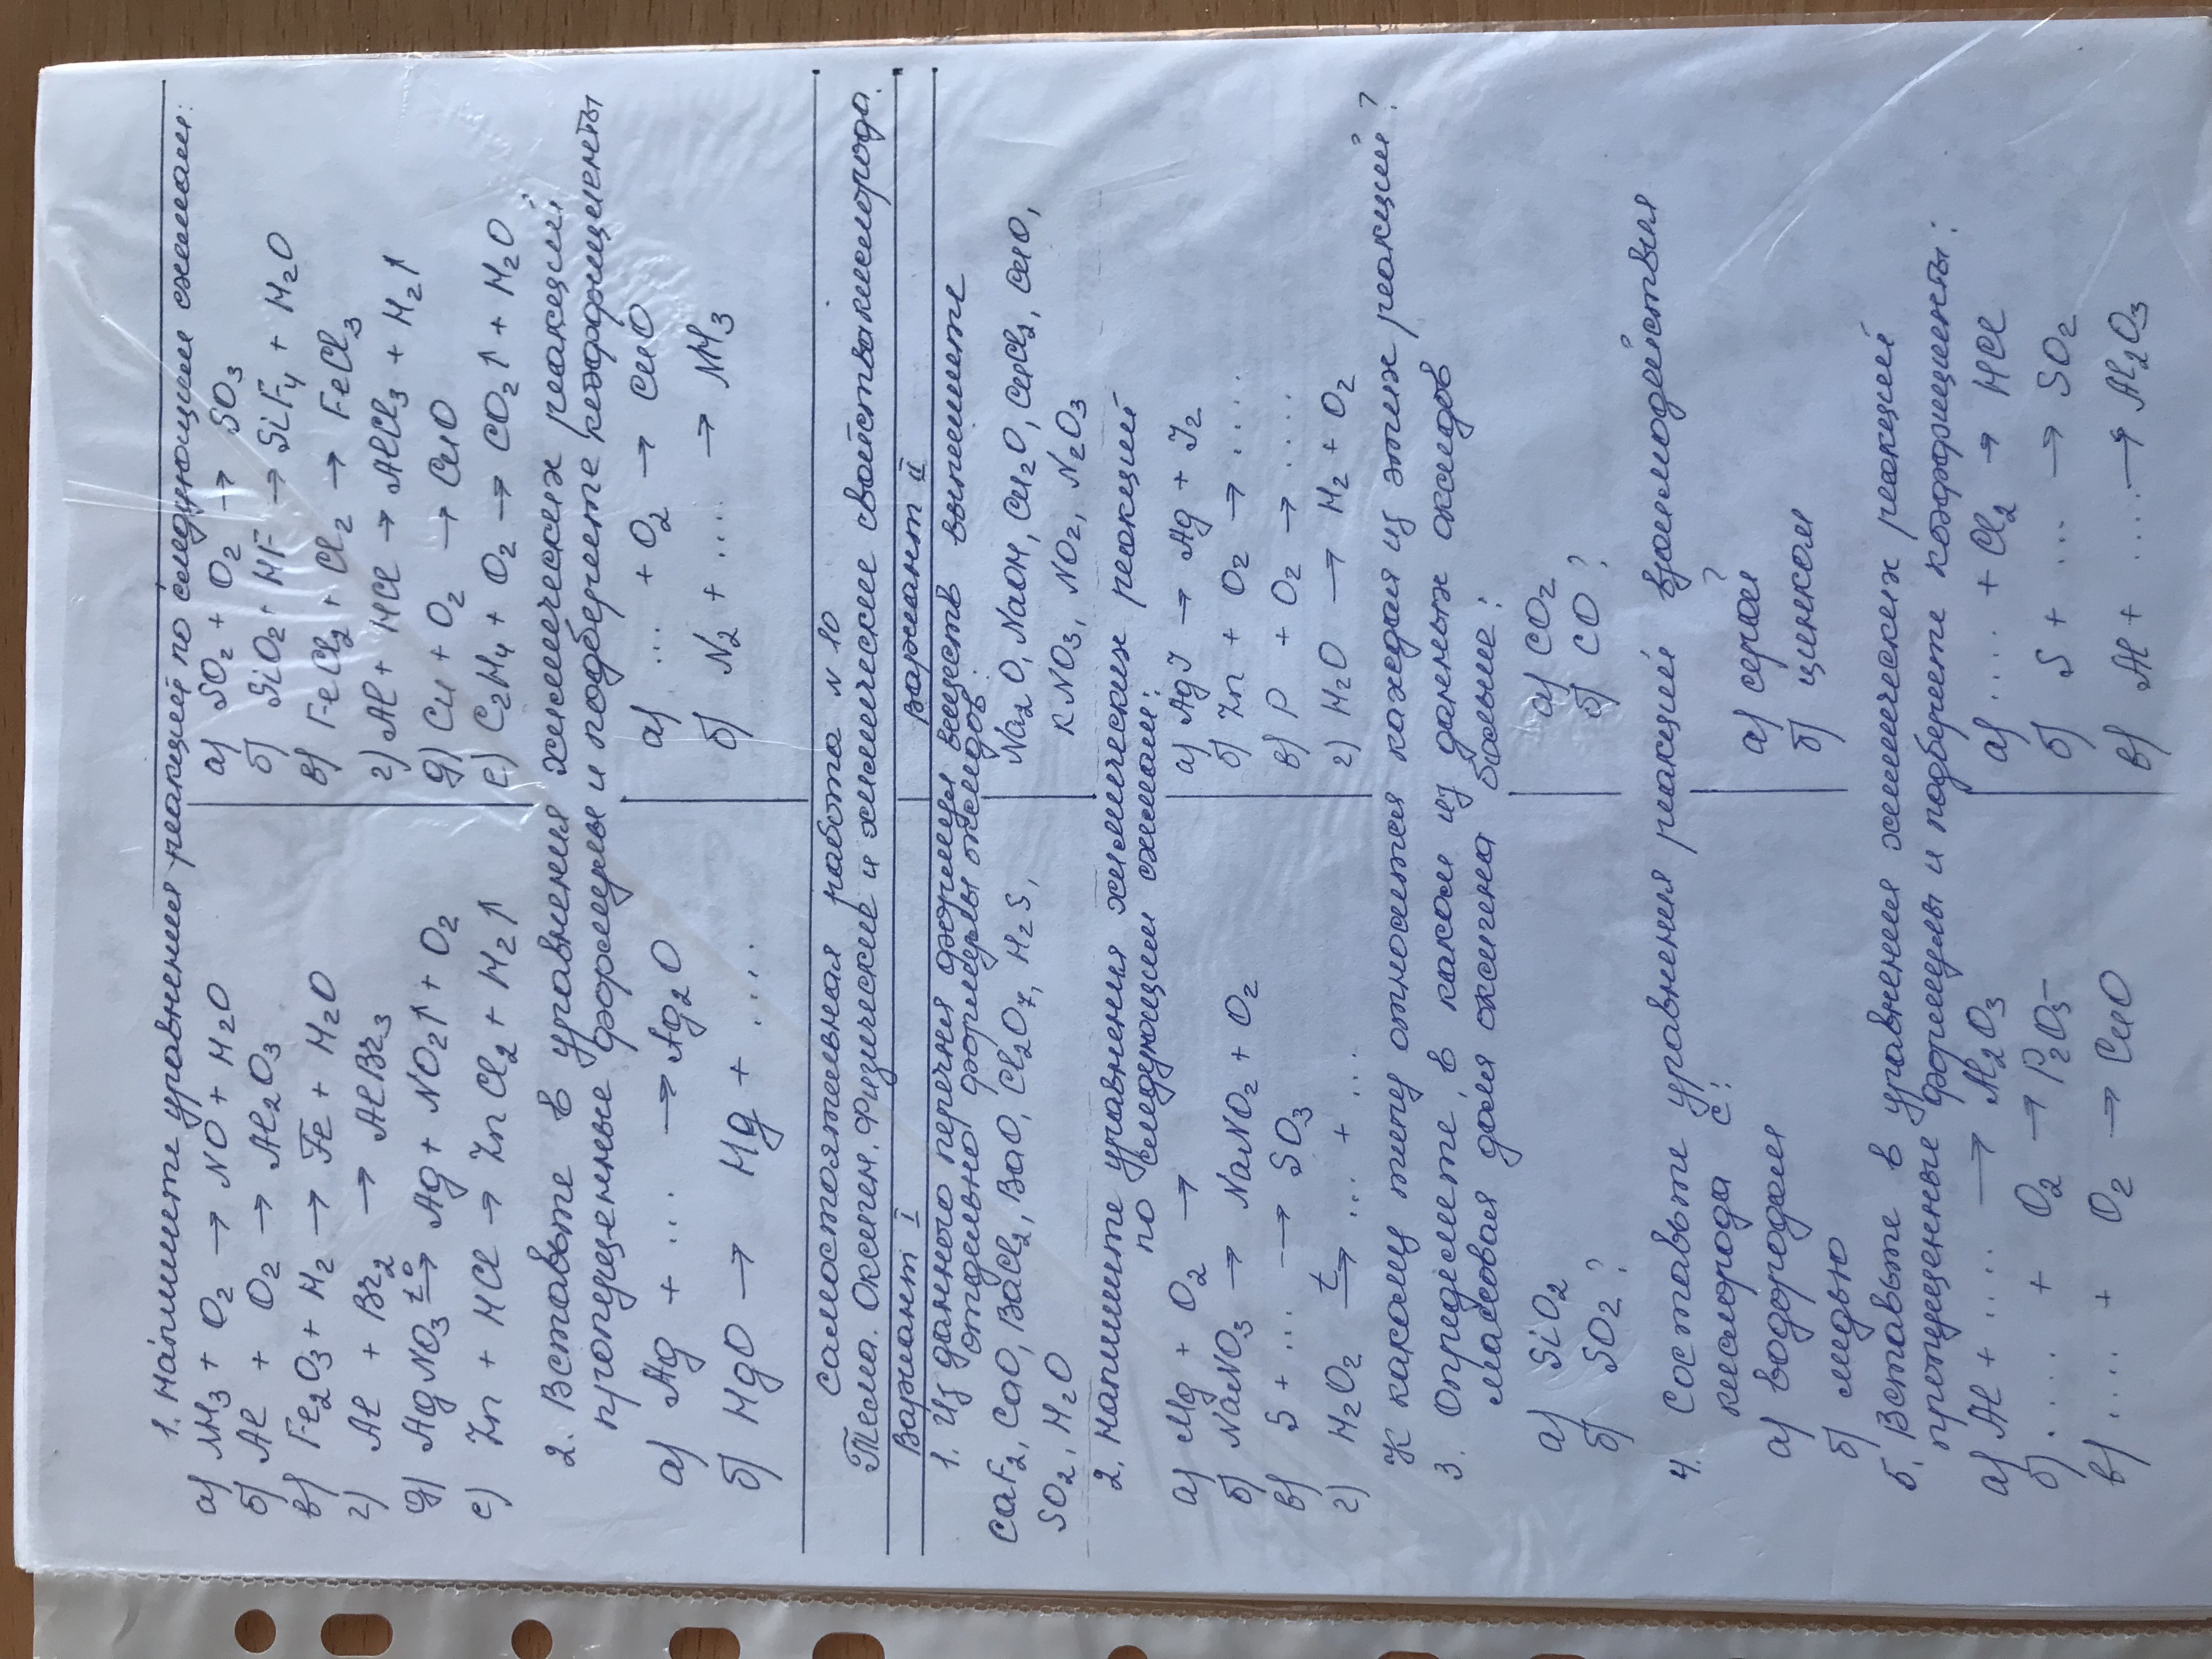 1. Напишите уравнения реакций по следующим схемам:
а) NH₃ + O₂ → NO + H₂O
б) Al + O₂ → Al₂O₃
в) Fe₂O₃ + H₂ → Fe + H₂O
г) Al + Br₂ → AlBr₃
д) AgNO₃ t°→ Ag + NO₂↑ + O₂
е) Zn + HCl → ZnCl₂ + H₂↑
а) SO₂ + O₂ → SO₃
б) SiO₂ + HF → SiF₄ + H₂O
в) FeCl₂ + Cl₂ → FeCl₃
г) Al + HCl → AlCl₃ + H₂↑
д) Cu + O₂ → CuO
е) C₂H₄ + O₂ → CO₂↑ + H₂O
2. Вставьте в уравнения химических реакций
пропущенные формулы и подберите коэффициенты
а) Ag + ... → Ag₂O
б) HgO → Hg + ....
а) ... + O₂ → CuO
б) N₂ + .... → NH₃
Самостоятельная работа N 10
Тема. Оксиген. Физические и химические свойства кислорода.
Вариант I
Вариант II
1. Из данного перечня формул веществ выпишите
отдельно формулы оксидов:
CaF₂, CaO, BaCl₂, BaO, Cl₂O₇, H₂S,
SO₂, H₂O
Na₂O, NaOH, Cu₂O, CuCl₂, CuO,
KNO₃, NO₂, N₂O₃
2. Напишите уравнения химических реакций
по следующим схемам:
а) Mg + O₂ →
б) NaNO₃ → NaNO₂ + O₂
в) S + ... → SO₃
г) H₂O₂ t→ ... + ...
а) AgI → Ag + I₂
б) Zn + O₂ → ....
в) P + O₂ → ....
г) H₂O → H₂ + O₂
К какому типу относится каждая из этих реакций?
3. Определите, в каком из данных оксидов
массовая доля оксигена больше:
а) SiO₂
б) SO₂?
а) CO₂
б) CO?
4. Составьте уравнения реакций взаимодействия
кислорода с:
а) водородом
б) медью
а) серой
б) цинком
5. Вставьте в уравнения химических реакций
пропущенные формулы и подберите коэффициенты:
а) Al + .... → Al₂O₃
б) .... + O₂ → P₂O₅
в) .... + O₂ → CuO
а) .... + Cl₂ → HCl
б) S + ... → SO₂
в) Al + .... → Al₂O₃